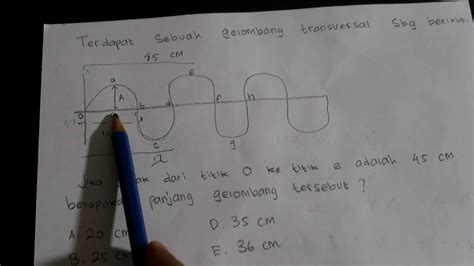 Terdapat Sebuah gelombang transversal Sbg berikut
45 CM
a
e
A
O
b
d
f
h
c
g
λ
Jika dari titik O ke titik e adalah 45 cm
berapa panjang gelombang tersebut ?
A. 20 cm
D. 35 cm
B. 25 cm
E. 36 cm